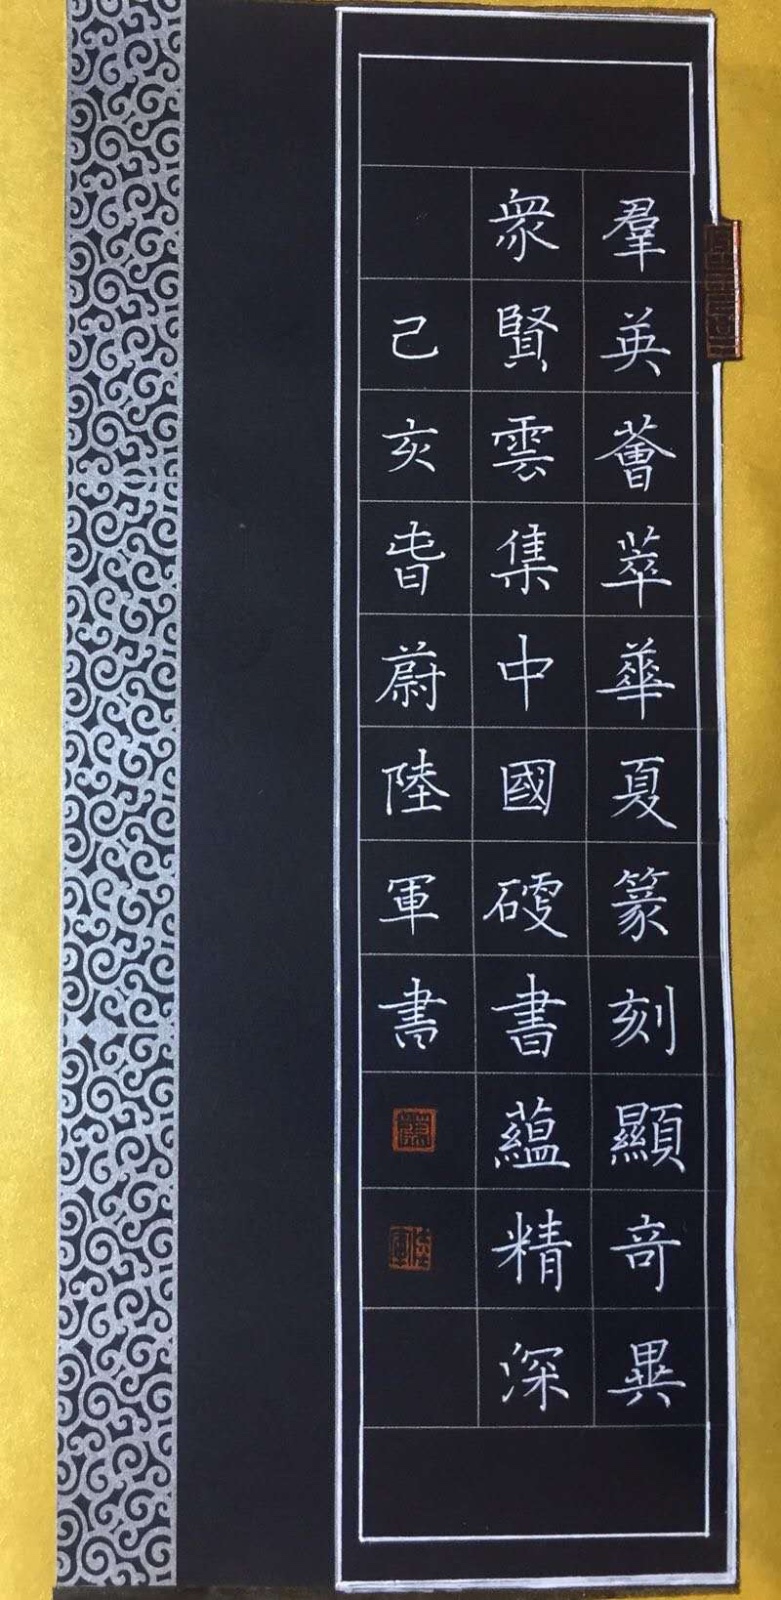 羣英薈萃華夏篆刻顯奇異
衆賢雲集中國硬書蘊精深
己亥春蔚陸軍書